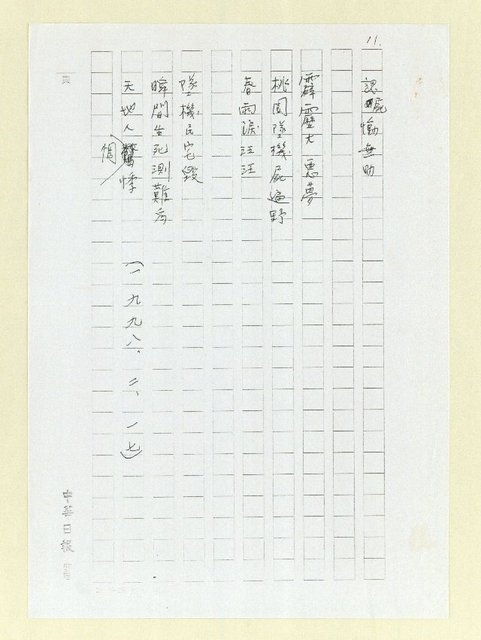 11.
認屍慟無助
霹靂大惡夢
桃園墜機屍遍野
春雨淚汪汪
墜機民宅毀
瞬間生死測難
天地人驚悸
(一九九八、二、一七)
中華日報